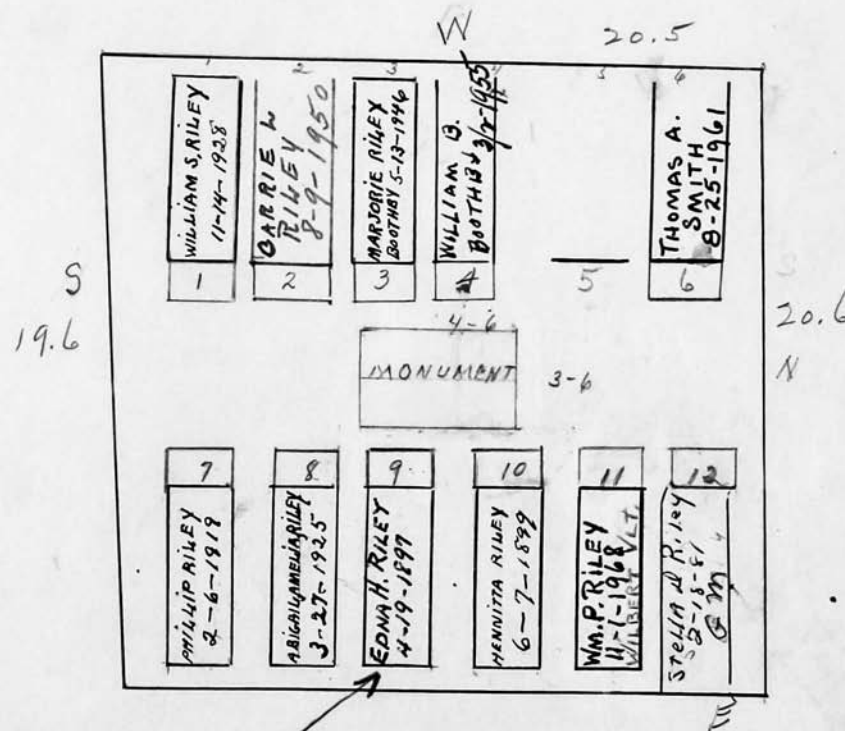 W 20.5
1 2 3 4 5 6
WILLIAM S. RILEY
11-14-1928
CARRIE L
RILEY
8-9-1950
MARJORIE RILEY
BOOTHBY 5-13-1946
WILLIAM B.
BOOTHBY 3/2-1955
THOMAS A.
SMITH
8-25-1961
1 2 3 4 5 6
S
19.6
20.6
N
4-6
MONUMENT 3-6
7 8 9 10 11 12
PHILLIP RILEY
2-6-1919
ABIGAIL AMELIA RILEY
3-27-1925
EDNA H. RILEY
4-19-1897
HENNITTA RILEY
6-7-1899
WM. P. RILEY
11-1-1968
WILBERT VLT.
Stella D Riley
2-18-81